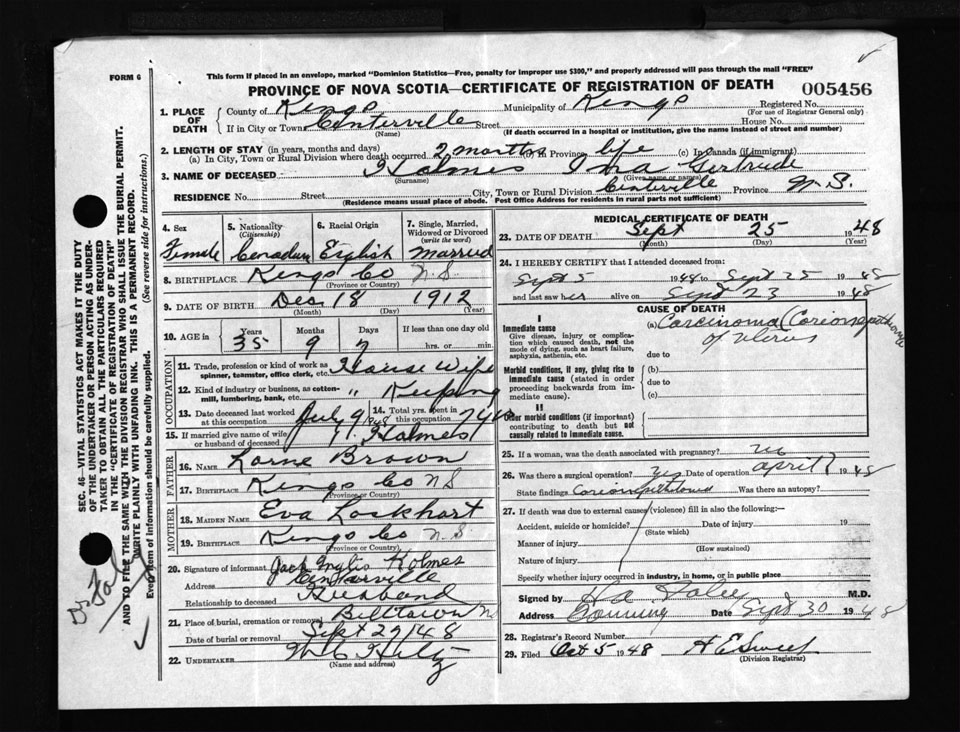 FORM 6
This form if placed in an envelope, marked "Dominion Statistics—Free, penalty for improper use $300," and properly addressed will pass through the mail "FREE"
PROVINCE OF NOVA SCOTIA—CERTIFICATE OF REGISTRATION OF DEATH
005456
1. PLACE OF DEATH
County of Kings Municipality of Kings Registered No.
(For use of Registrar General only)
If in City or Town Centerville Street House No.
(Name) (If death occurred in a hospital or institution, give the name instead of street and number)
2. LENGTH OF STAY (in years, months and days)
(a) In City, Town or Rural Division where death occurred 2 months (b) In Province life (c) In Canada (if immigrant)
3. NAME OF DECEASED Holmes Ina Gertrude
(Surname) (Given name or names)
RESIDENCE No. Street City, Town or Rural Division Centerville Province N.S.
(Residence means usual place of abode. Post Office Address for residents in rural parts not sufficient)
4. Sex
Female
5. Nationality
(Citizenship)
Canadian
6. Racial Origin
English
7. Single, Married, Widowed or Divorced
(write the word)
Married
8. BIRTHPLACE Kings Co N.S.
(Province or Country)
9. DATE OF BIRTH Dec 18 1912
(Month) (Day) (Year)
10. AGE in Years Months Days If less than one day old
35 9 7 hrs. or min.
OCCUPATION
11. Trade, profession or kind of work as spinner, teamster, office clerk, etc. House Wife
12. Kind of industry or business, as cotton-mill, lumbering, bank, etc. " Keeping
13. Date deceased last worked at this occupation July 9/1948
14. Total yrs. spent in this occupation 7 yrs
15. If married give name of wife or husband of deceased Holmes
FATHER
16. NAME Lorne Brown
17. BIRTHPLACE Kings Co N S
(Province or Country)
MOTHER
18. MAIDEN NAME Eva Lockhart
19. BIRTHPLACE Kings Co N.S.
(Province or Country)
20. Signature of informant Jack Holmes
Address Centerville
Relationship to deceased Husband
21. Place of burial, cremation or removal Billtown N
Date of burial or removal Sept 29/48
22. UNDERTAKER
(Name and address)
MEDICAL CERTIFICATE OF DEATH
23. DATE OF DEATH Sept 25 1948
(Month) (Day) (Year)
24. I HEREBY CERTIFY that I attended deceased from:
Sept 5 1948 to Sept 25 1948
and last saw her alive on Sept 23 1948
CAUSE OF DEATH
I
Immediate cause
Give disease, injury or complication which caused death, not the mode of dying, such as heart failure, asphyxia, asthenia, etc.
(a) Carcinoma
of Uterus
due to
Morbid conditions, if any, giving rise to immediate cause (stated in order proceeding backwards from immediate cause).
(b)
due to
(c)
II
Other morbid conditions (if important) contributing to death but not causally related to immediate cause.
25. If a woman, was the death associated with pregnancy?
26. Was there a surgical operation? Yes Date of operation April 1948
State findings Was there an autopsy?
27. If death was due to external causes (violence) fill in also the following:—
Accident, suicide or homicide? Date of injury 19
(State which)
Manner of injury
(How sustained)
Nature of injury
Specify whether injury occurred in industry, in home, or in public place
Signed by M.D.
Address Canning Date Sept 30 1948
28. Registrar's Record Number
29. Filed Oct 5 1948 H E Sweet
(Division Registrar)
SEC. 46—VITAL STATISTICS ACT MAKES IT THE DUTY
OF THE UNDERTAKER OR PERSON ACTING AS UNDER-
TAKER TO OBTAIN ALL THE PARTICULARS REQUIRED
IN THE "CERTIFICATE OF REGISTRATION OF DEATH"
AND TO FILE THE SAME WITH THE DIVISION REGISTRAR WHO SHALL ISSUE THE BURIAL PERMIT.
WRITE PLAINLY WITH UNFADING INK. THIS IS A PERMANENT RECORD.
Every item of information should be carefully supplied. (See reverse side for instructions.)